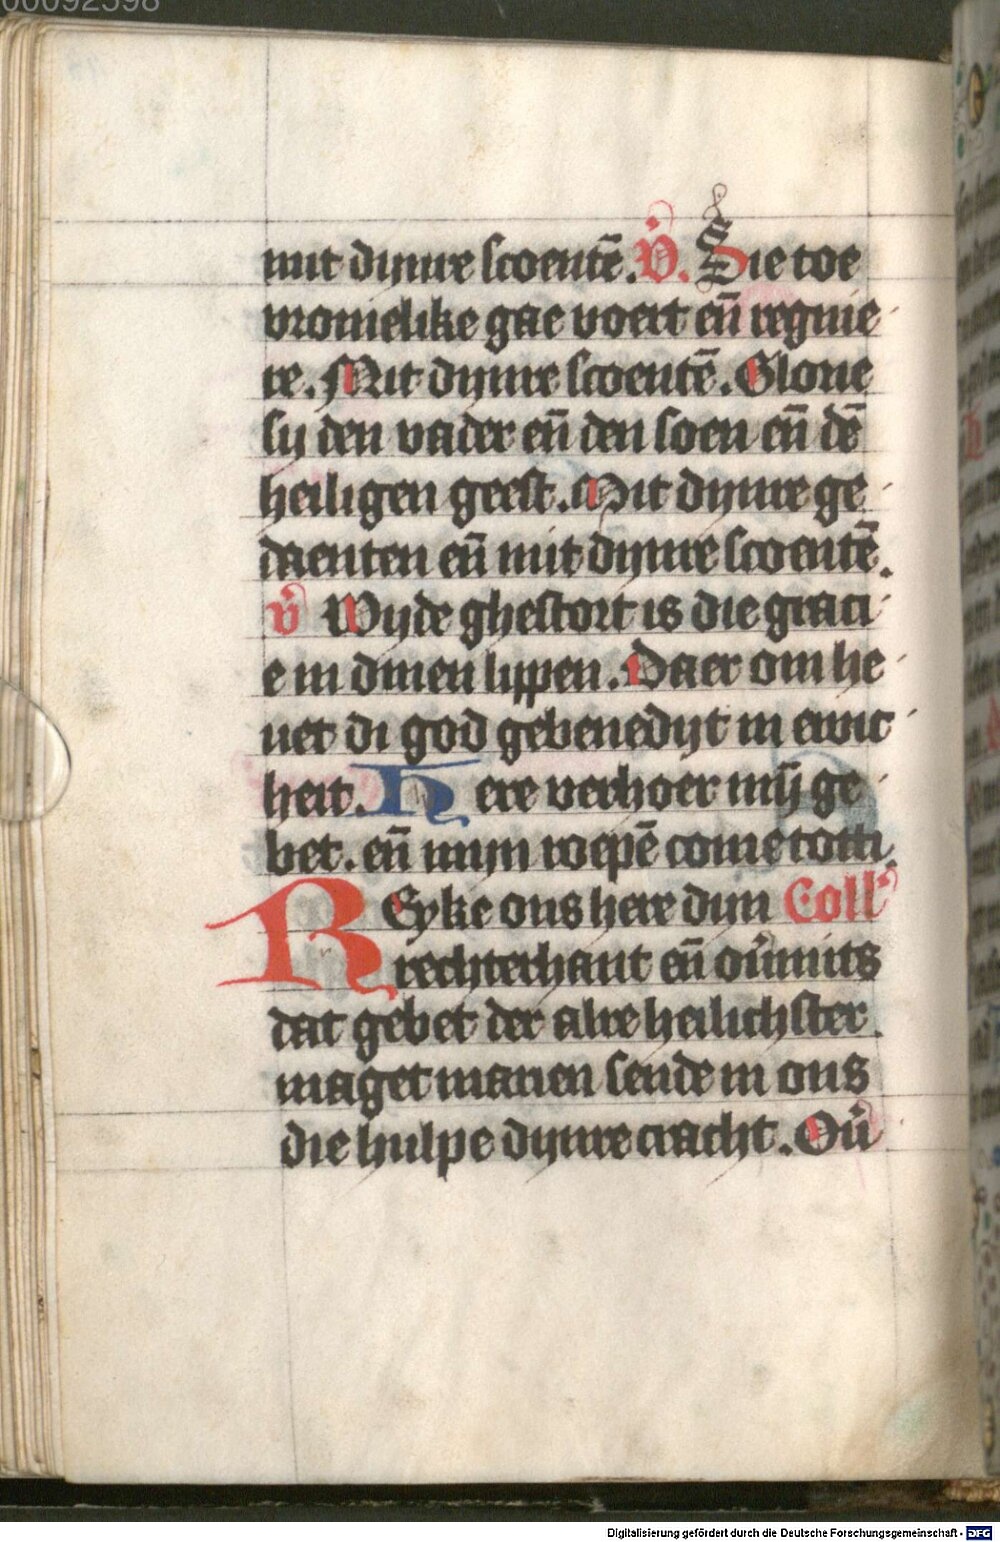 00092598
mit dijnre scoentē. V̓. Sie toe
vromelike gae voert en̄ regnie
re. Mit dijnre scoentē. Glorie
sij den vader en̄ den soen en̄ dē
heiligen geest. Mit dijnre ge
daenten en̄ mit dijnre scoentē.
v̓ Wyde ghestort is die graci
e in dinen lippen. Daer om he
uet di god gebenedijt in ewic
heit. Here verhoer mij̄ ge
bet. en̄ mijn roepē come totti.
REyke ons here dijn Coll'
rechterhant en̄ ou̓mits
dat gebet der alre heilichster
maget marien sende in ons
die hulpe dijnre cracht. Ou̓
Digitalisierung gefördert durch die Deutsche Forschungsgemeinschaft - DFG